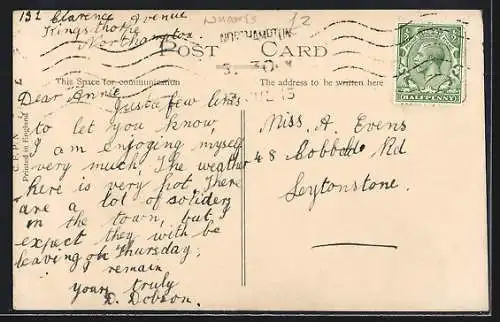 132 Clarence Avenue
Kingsthorpe
Northampton
NHANTS 12
NORTHAMPTON
POST CARD
This Space for communication
The address to be written here
HALFPENNY
Printed in England
Dear Annie
Just a few lines
to let you know,
I am enjoying myself
very much. The weather
here is very hot. There
are a lot of soliders
in the town, but I
expect they with be
leaving on Thursday,
remain
yours truly
D. Dobson.
Miss. A. Evens
48 Cobbold Rd
Leytonstone.